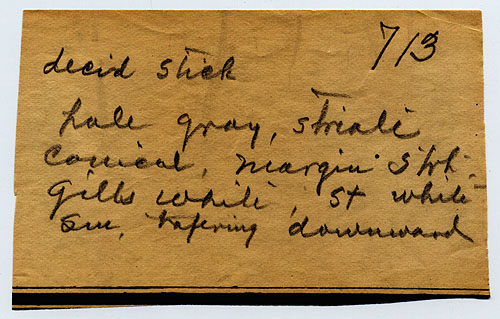 7/3
decid stick
pale gray, striate
conical, margin str.
gills white, st white
sm, tapering downward